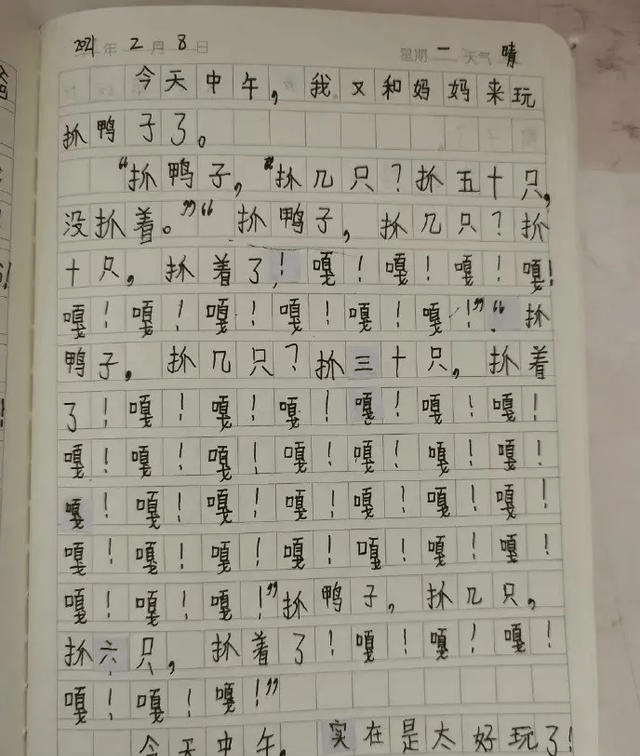 2021年2月8日 星期一 天气 晴
今天中午，我又和妈妈来玩
抓鸭子了。
“抓鸭子，“抓几只？抓五十只，
没抓着。”“抓鸭子，抓几只？抓
十只，抓着了！嘎！嘎！嘎！嘎！
嘎！嘎！嘎！嘎！嘎！嘎！”“抓
鸭子，抓几只？抓三十只，抓着
了！嘎！嘎！嘎！嘎！嘎！嘎！
嘎！嘎！嘎！嘎！嘎！嘎！嘎！
嘎！嘎！嘎！嘎！嘎！嘎！嘎！
嘎！嘎！嘎！嘎！嘎！嘎！嘎！
嘎！嘎！嘎！”抓鸭子，抓几只，
抓六只，抓着了！嘎！嘎！嘎！
嘎！嘎！嘎！”
今天中午，实在是太好玩了！